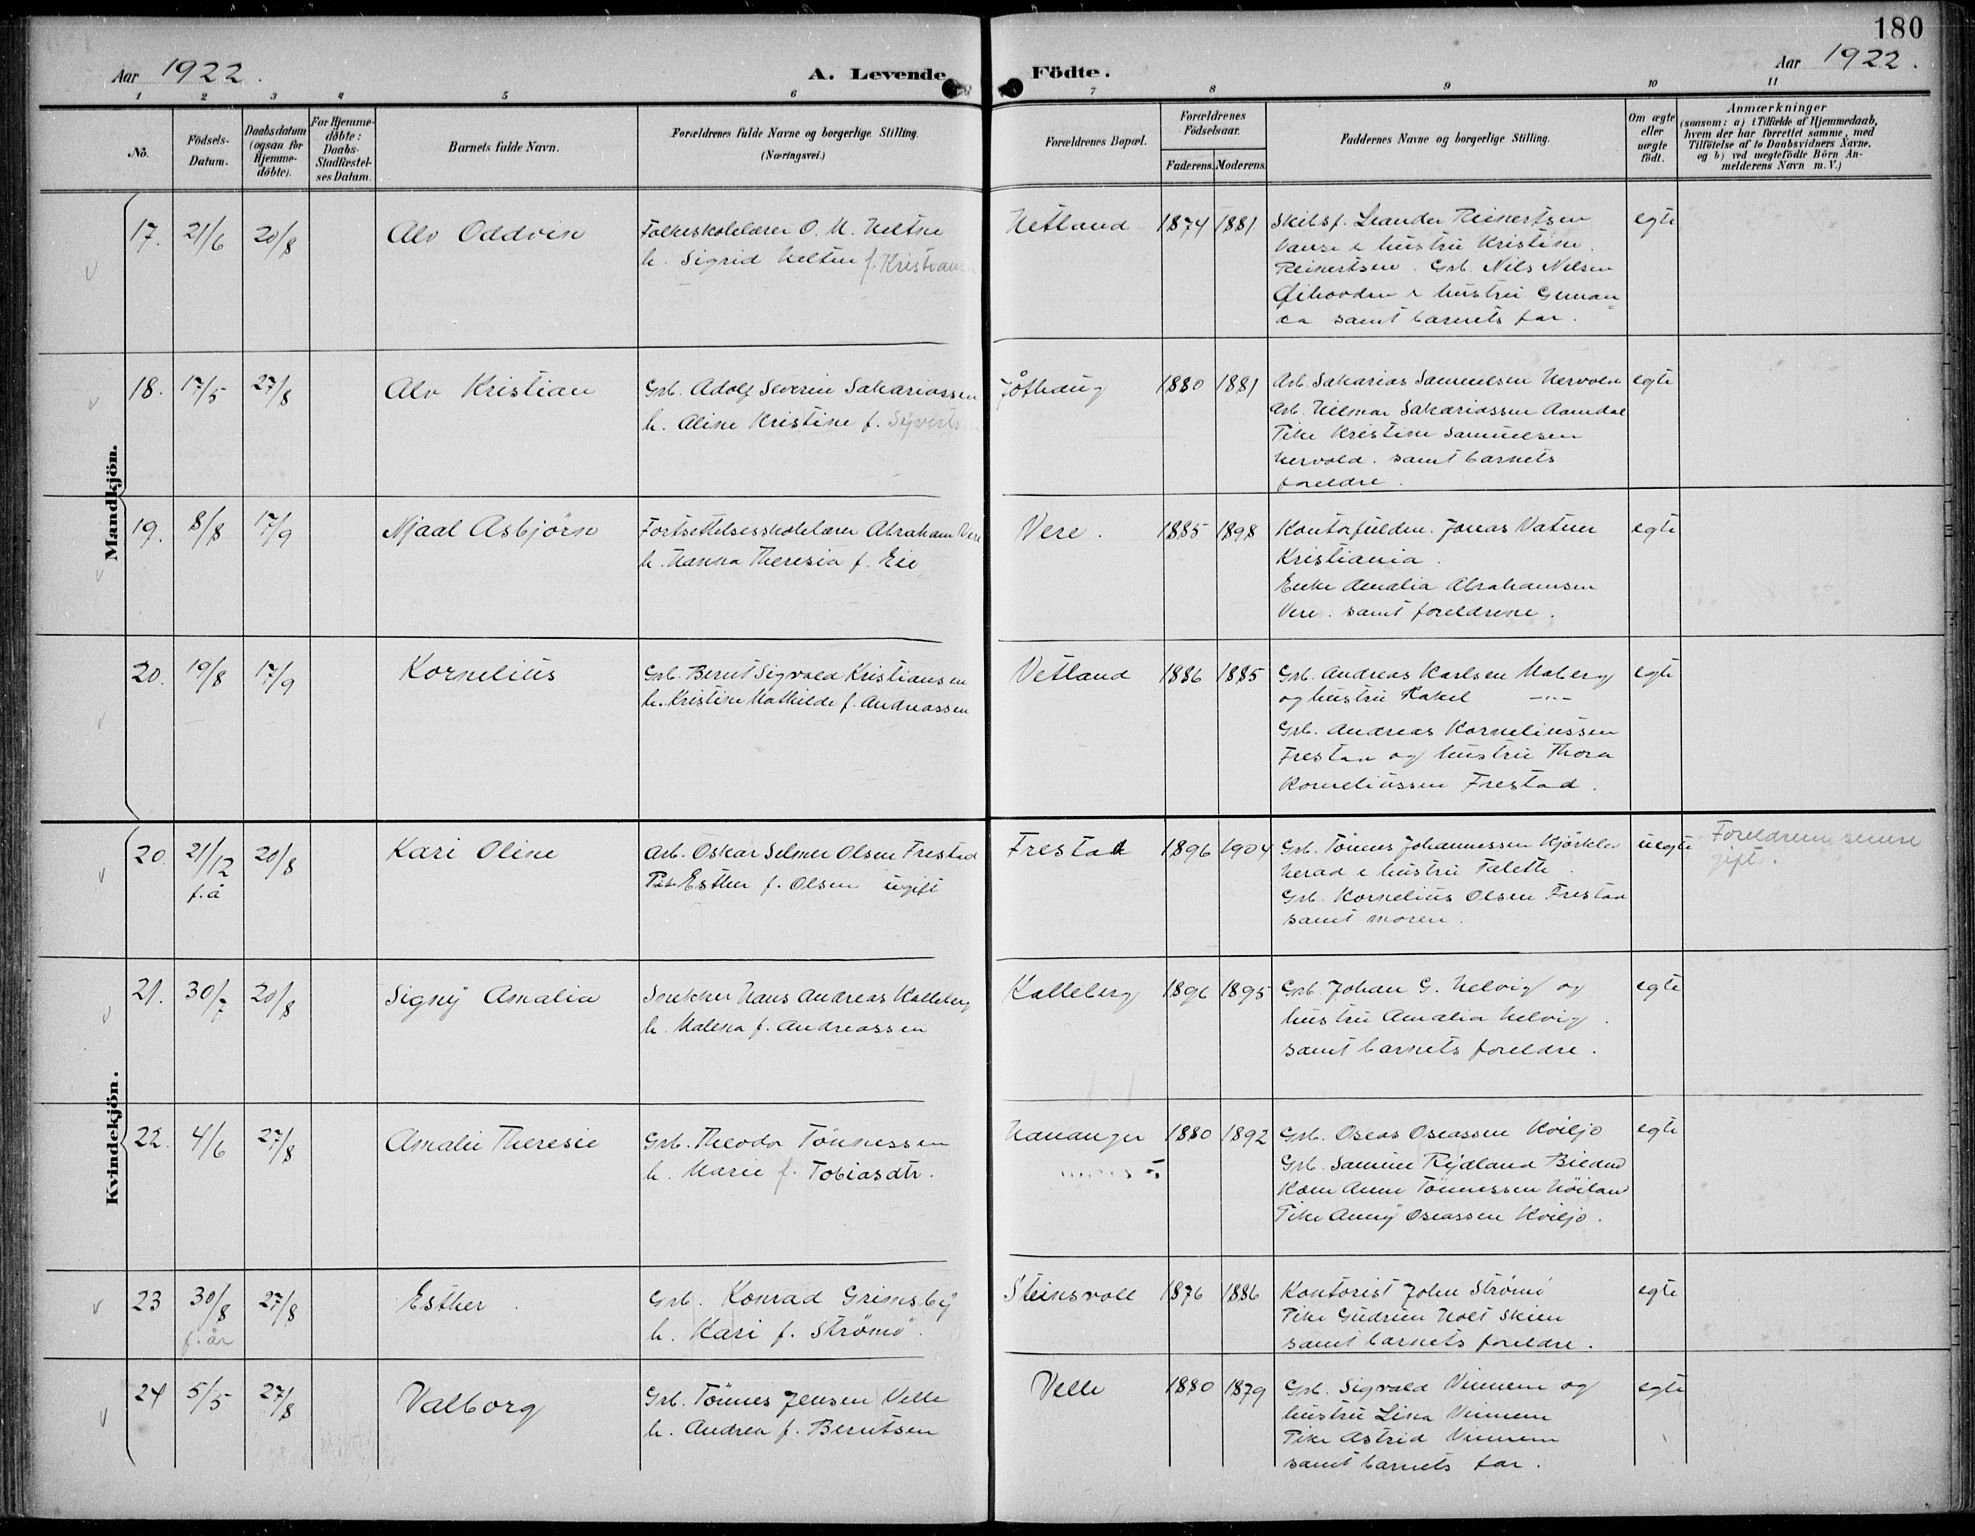 180
Aar 1922. A. Levende Födte. Aar 1922.
1 2 3 4 5 6 7 8 9 10 11
No.
Födsels-
Datum.
Daabsdatum
(ogsaa for
Hjemme-
döbte).
For Hjemme-
döbte:
Daabs-
Stadfæstel-
ses Datum.
Barnets fulde Navn.
Forældrenes fulde Navne og borgerlige Stilling.
(Næringsvei.)
Forældrenes Bopæl.
Forældrenes
Födselsaar.
Faderens. Moderens.
Faddernes Navne og borgerlige Stilling.
Om ægte
eller
uægte
födt.
Anmærkninger
(saasom: a) i Tilfælde af Hjemmedaab,
hvem der har forrettet samme, med
Tilföielse af to Daabsvidners Navne,
og b) ved uægtefödte Börn An-
melderens Navn m. V.)
Mandkjön.
17. 21/6 20/8 Alv Oddvin
Folkeskolelærer O. M. Netland
h. Sigrid f. Kristiansen
Netland 1874 1881
Skibsf. Leander Reinertsen
Vanse & hustru Kristine
Reinertsen. Grb. Nils Nilsen
& hustru
samt barnets far.
egte
18. 17/5 27/8 Alv Kristian
Grb. Adolf Severin Sakariassen
h. Aline Kristine f. Syverts
Jåthaug 1880 1881
Arb. Sakarias Samuelsen Hervold
Arb. Hilmar Sakariassen Aamdal
Pike Kristine Samuelsen
Hervold. samt barnets
foreldre.
egte
19. 8/8 17/9 Njaal Asbjörn
Fortsettelsesskolelærer Abraham Vere
h. Hanna Theresia f. Eie
Vere. 1885 1898
Kontorfuldm. Jonas Vatne
Kristiania.
Enke Amalia Abrahamsen
Vere. samt foreldrene.
egte
20. 19/8 17/9 Kornelius
Grb. Bernt Sigvald Kristiansen
h. Kristine Mathilde f. Andreassen
Vetland 1886 1885
Grb. Andreas Karlsen Maberg
og hustru Rakel —"—
Grb. Andreas Korneliussen
Frestad og hustru Thora
Korneliussen Frestad.
egte
Kvindekjön.
20. 21/12 f.å 20/8 Kari Oline
Arb. Oskar Selmer Olsen Frestad
Pike Esther f. Olsen ugift
Frestad 1896 1904
Grb. Tönnes Johannessen Kjörkle
herad & hustru Talette.
Grb. Kornelius Olsen Frestad
samt moren.
uegte
Foreldrene senere
gift.
21. 30/7 20/8 Signy Amalia
Snekker Hans Andreas Kalleberg
h. Malena f. Andreassen
Kalleberg 1896 1895
Grb. Johan G. Helvig og
hustru Amalia Helvig.
samt barnets foreldre.
egte
22. 4/6 27/8 Amalie Theresie
Grb. Theodor Tönnessen
h. Marie f. Tobiasdtr.
Hananger 1880 1892
Grb. Oseas Oseassen Kviljo
Grb. Samuel Rydland
Anne Tönnessen Höiland
Pike Anny Oseassen Kviljo.
egte
23 30/8 f. år 27/8 Esther.
Grb. Konrad Grimsby
h. Kari f. Strömö.
Steinsvoll 1876 1886
Kontorist John Strömö
Pike Gudrun Holt Skien
samt barnets foreldre.
egte
24 5/5 27/8 Valborg
Grb. Tönnes Jensen Velle
h. Andrea f. Berntsen
Velle 1880 1879
Grb. Sigvald Vinnem og
hustru Lina Vinnem
Pike Astrid Vinnem
samt barnets far.
egte